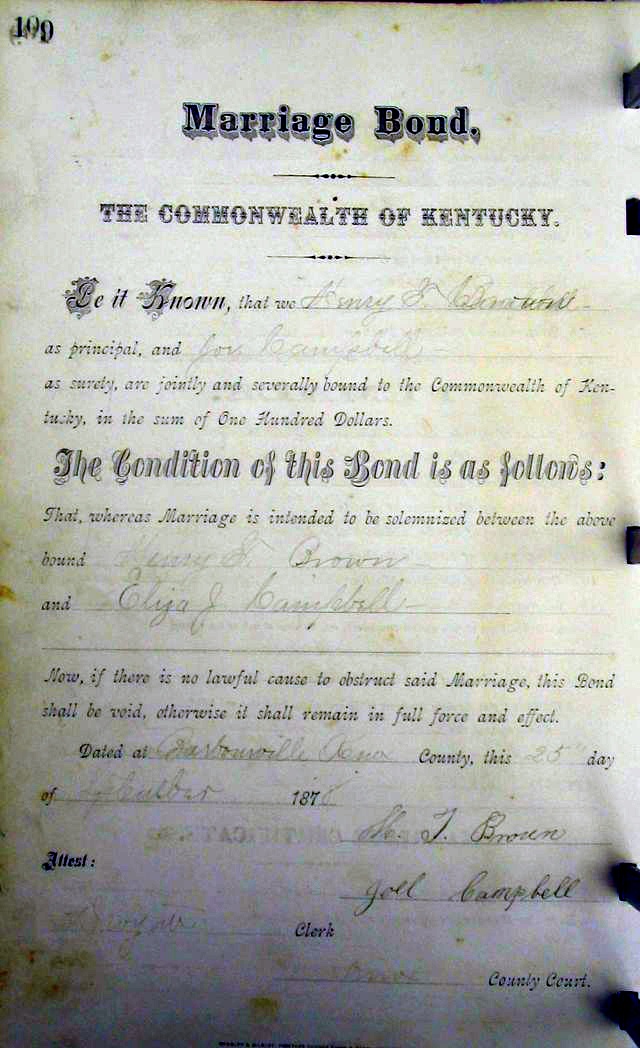 109
Marriage Bond.
THE COMMONWEALTH OF KENTUCKY.
Be it Known, that we Henry T.
as principal, and Campbell
as surety, are jointly and severally bound to the Commonwealth of Ken-
tucky, in the sum of One Hundred Dollars.
The Condition of this Bond is as follows:
That, whereas Marriage is intended to be solemnized between the above
bound Henry T. Brown
and Eliza J. Campbell
Now, if there is no lawful cause to obstruct said Marriage, this Bond
shall be void, otherwise it shall remain in full force and effect.
Dated at Barbourville Knox County, this 25" day
of 1878
H. T. Brown
Attest:
Joel Campbell
Clerk
Knox County Court.